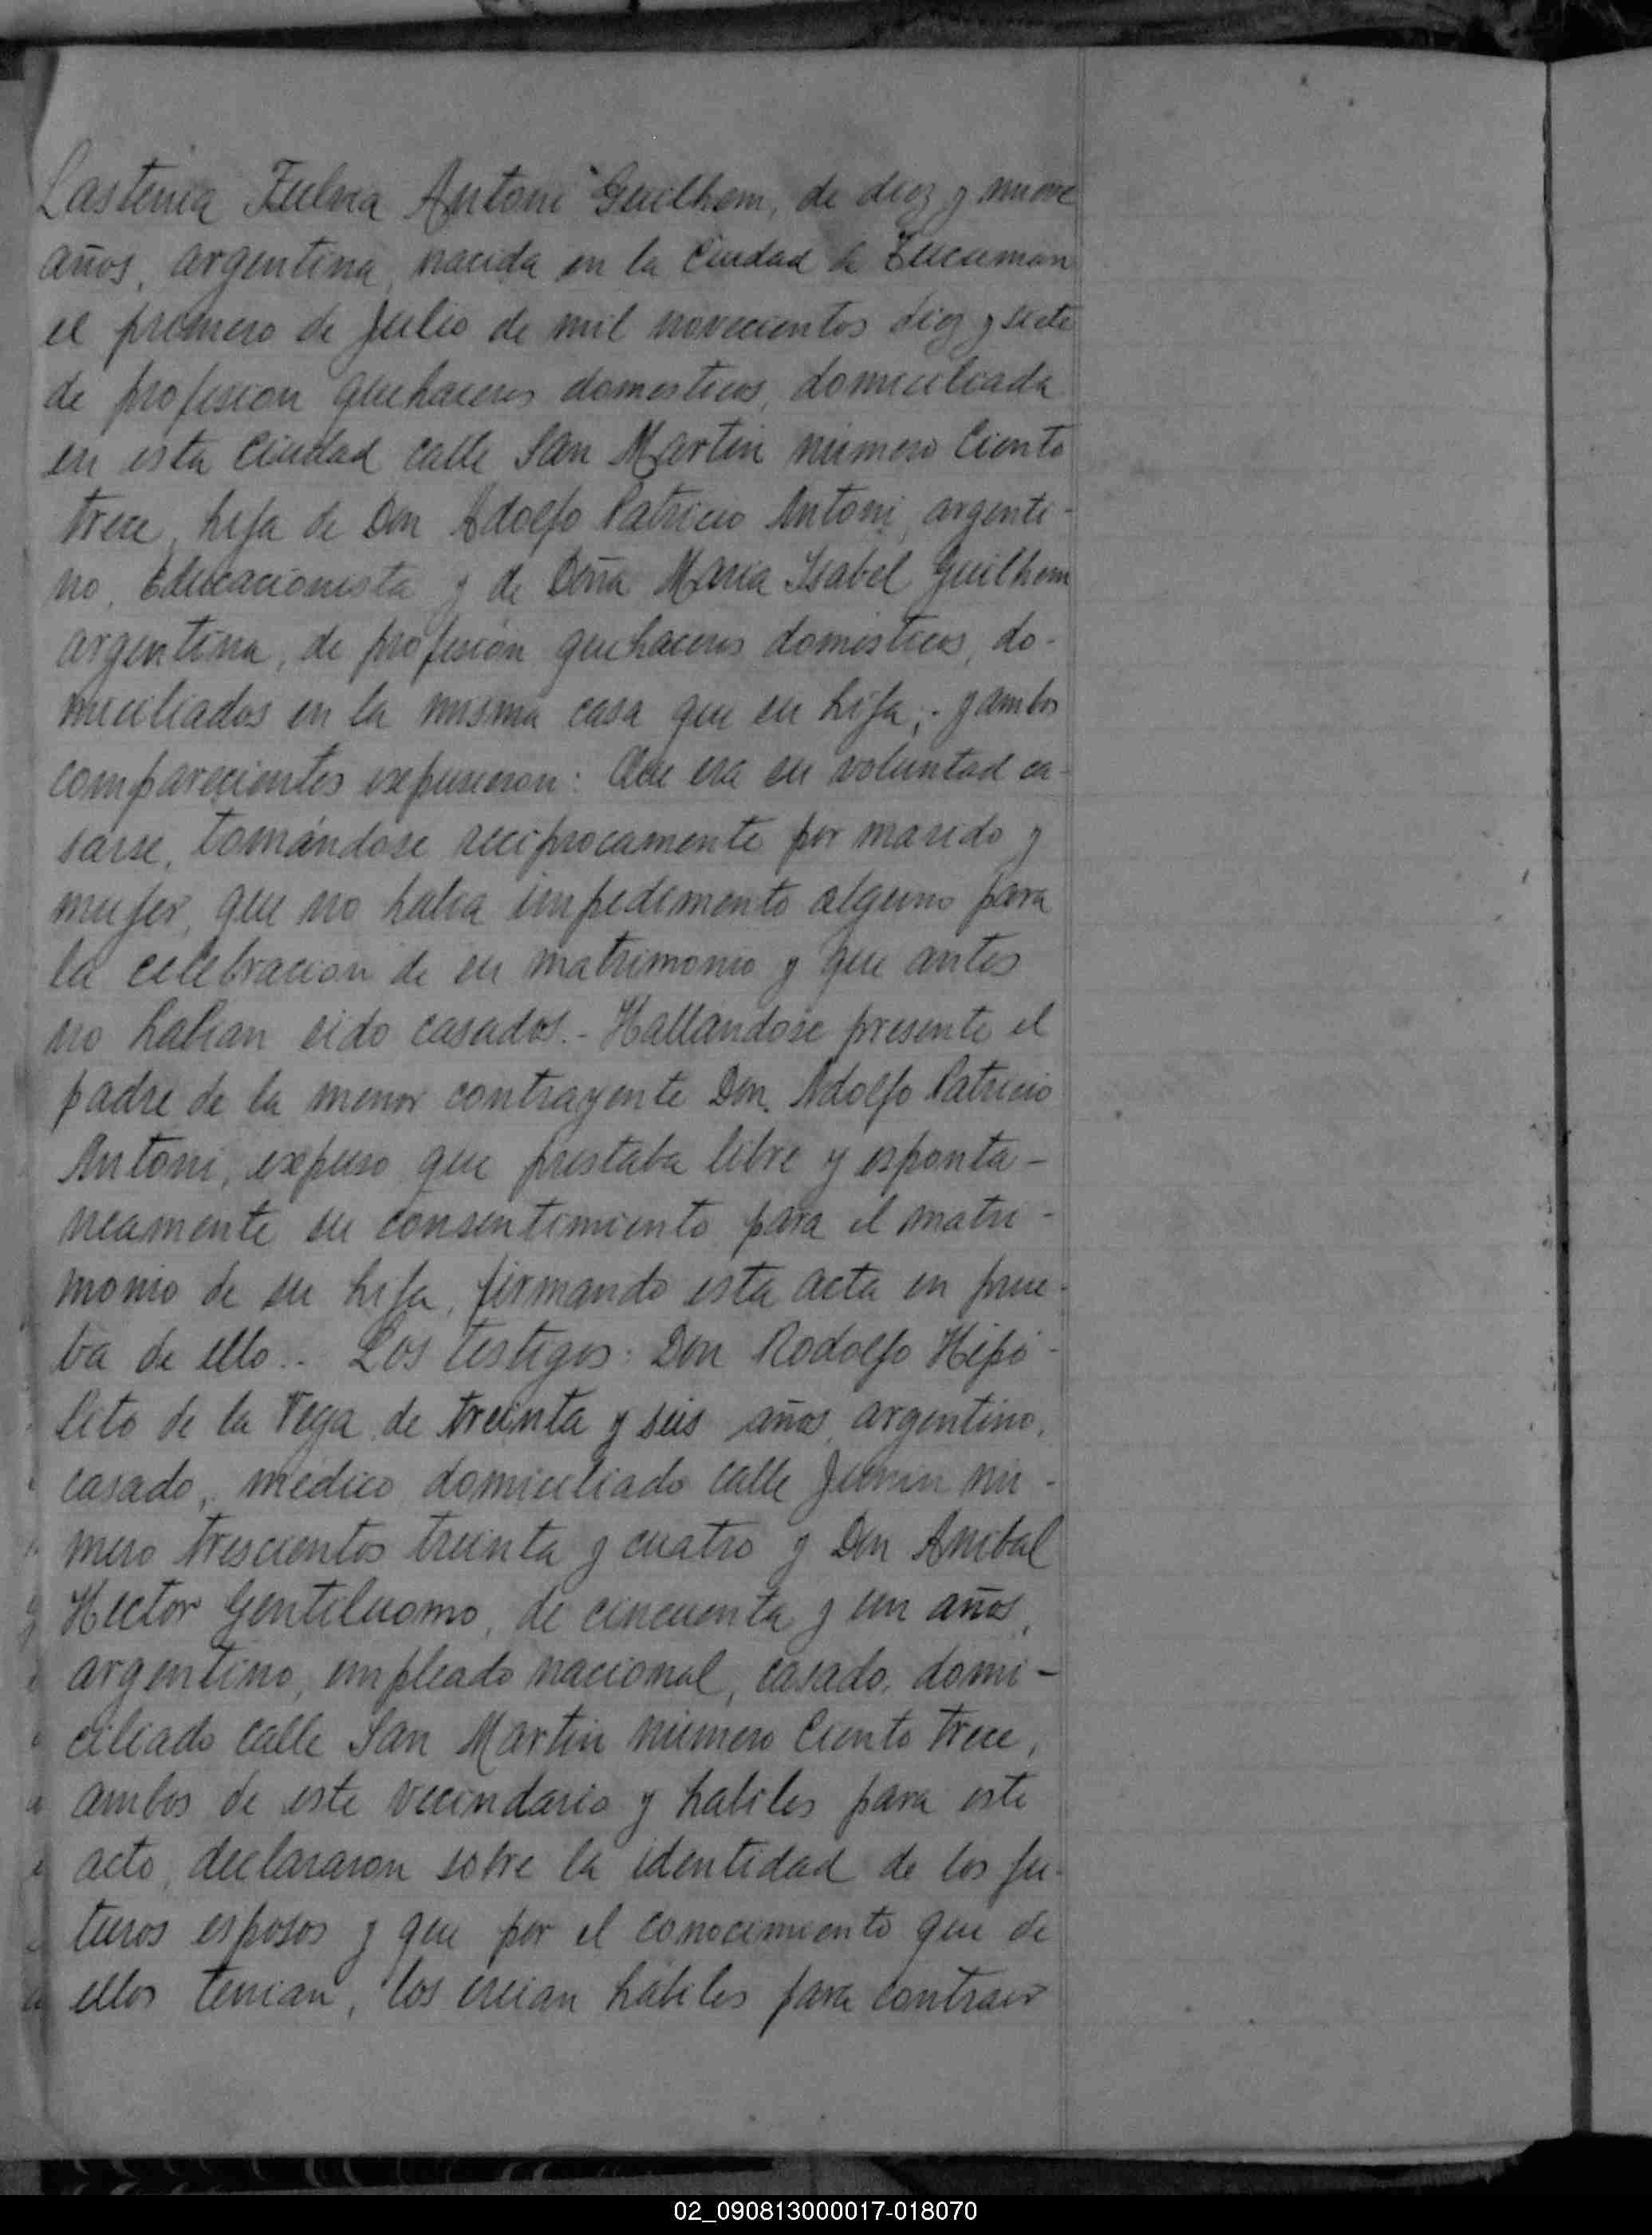 Lastenia Zulma Antoni Guilhem, de diez y nueve
años, argentina, nacida en la Ciudad de Tucuman
el primero de Julio de mil novecientos diez y siete
de profesion quehaceres domesticos, domiciliada
en esta Ciudad calle San Martin número Ciento
trece, hija de Don Adolfo Patricio Antoni, argenti-
no, Educacionista y de Doña Maria Isabel Guilhem
argentina, de profesión quehaceres domésticos, do-
miciliados en la misma casa que su hija;- y ambos
comparecientes expusieron: Que era su voluntad ca-
sarse, tomándose reciprocamente por marido y
mujer, que no habia impedimento alguno para
la celebracion de su matrimonio y que antes
no habian sido casados.- Hallandose presente el
padre de la menor contrayente Don. Adolfo Patricio
Antoni, expuso que prestaba libre y esponta-
neamente su consentimiento para el matri-
monio de su hija, firmando esta acta en prue-
ba de ello.- Los testigos: Don Rodolfo Hipó-
lito de la Vega, de treinta y seis años, argentino,
casado, médico, domiciliado calle Junin nú-
mero trescientos treinta y cuatro y Don Anibal
Hector Gentiluomo, de cincuenta y un años,
argentino, empleado nacional, casado, domi-
ciliado calle San Martin número Ciento trece,
ambos de este vecindario y habiles para este
acto, declararon sobre la identidad de los fu-
turos esposos y que por el conocimiento que de
ellos tenian, los creian hábiles para contraer
02_090813000017-018070